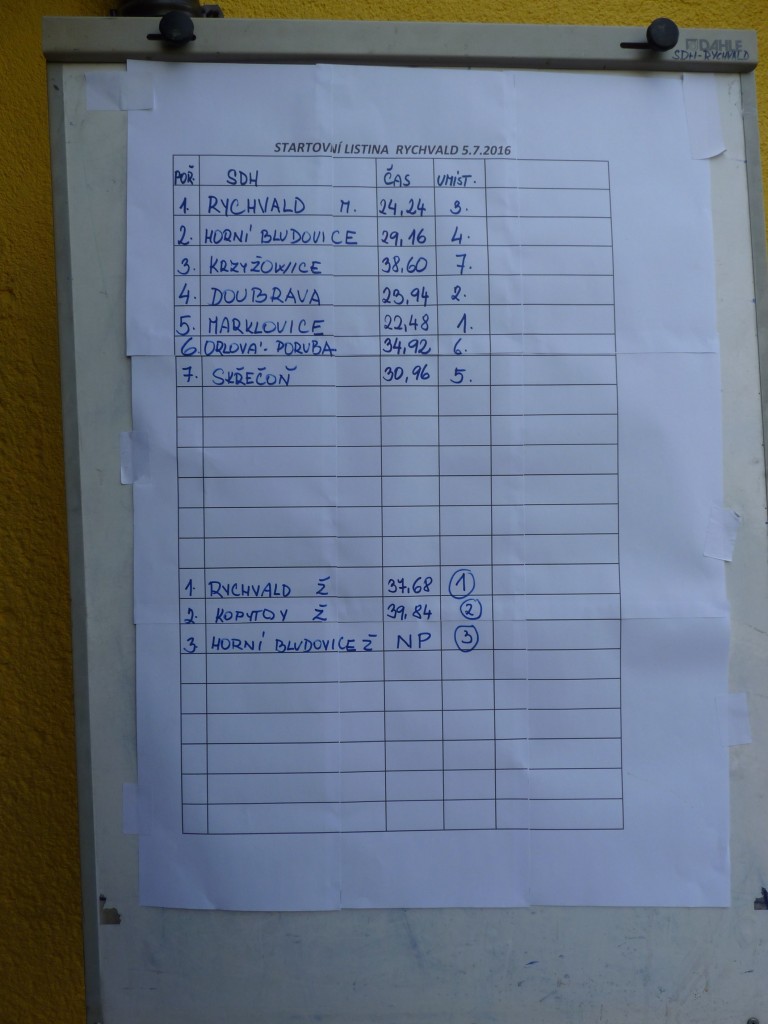 DAHLE
SDH-RYCHVALD
STARTOVNÍ LISTINA RYCHVALD 5.7.2016
POŘ. SDH ČAS UMÍST.
1. RYCHVALD M. 24,24 3.
2. HORNÍ BLUDOVICE 29,16 4.
3. KRZYŽOWICE 38,60 7.
4. DOUBRAVA 23,94 2.
5. MARKLOVICE 22,48 1.
6. ORLOVÁ-PORUBA 34,92 6.
7. SKŘEČOŇ 30,96 5.
1. RYCHVALD Ž 37,68 1
2. KOPYTOV Ž 39,84 2
3 HORNÍ BLUDOVICE Ž NP 3